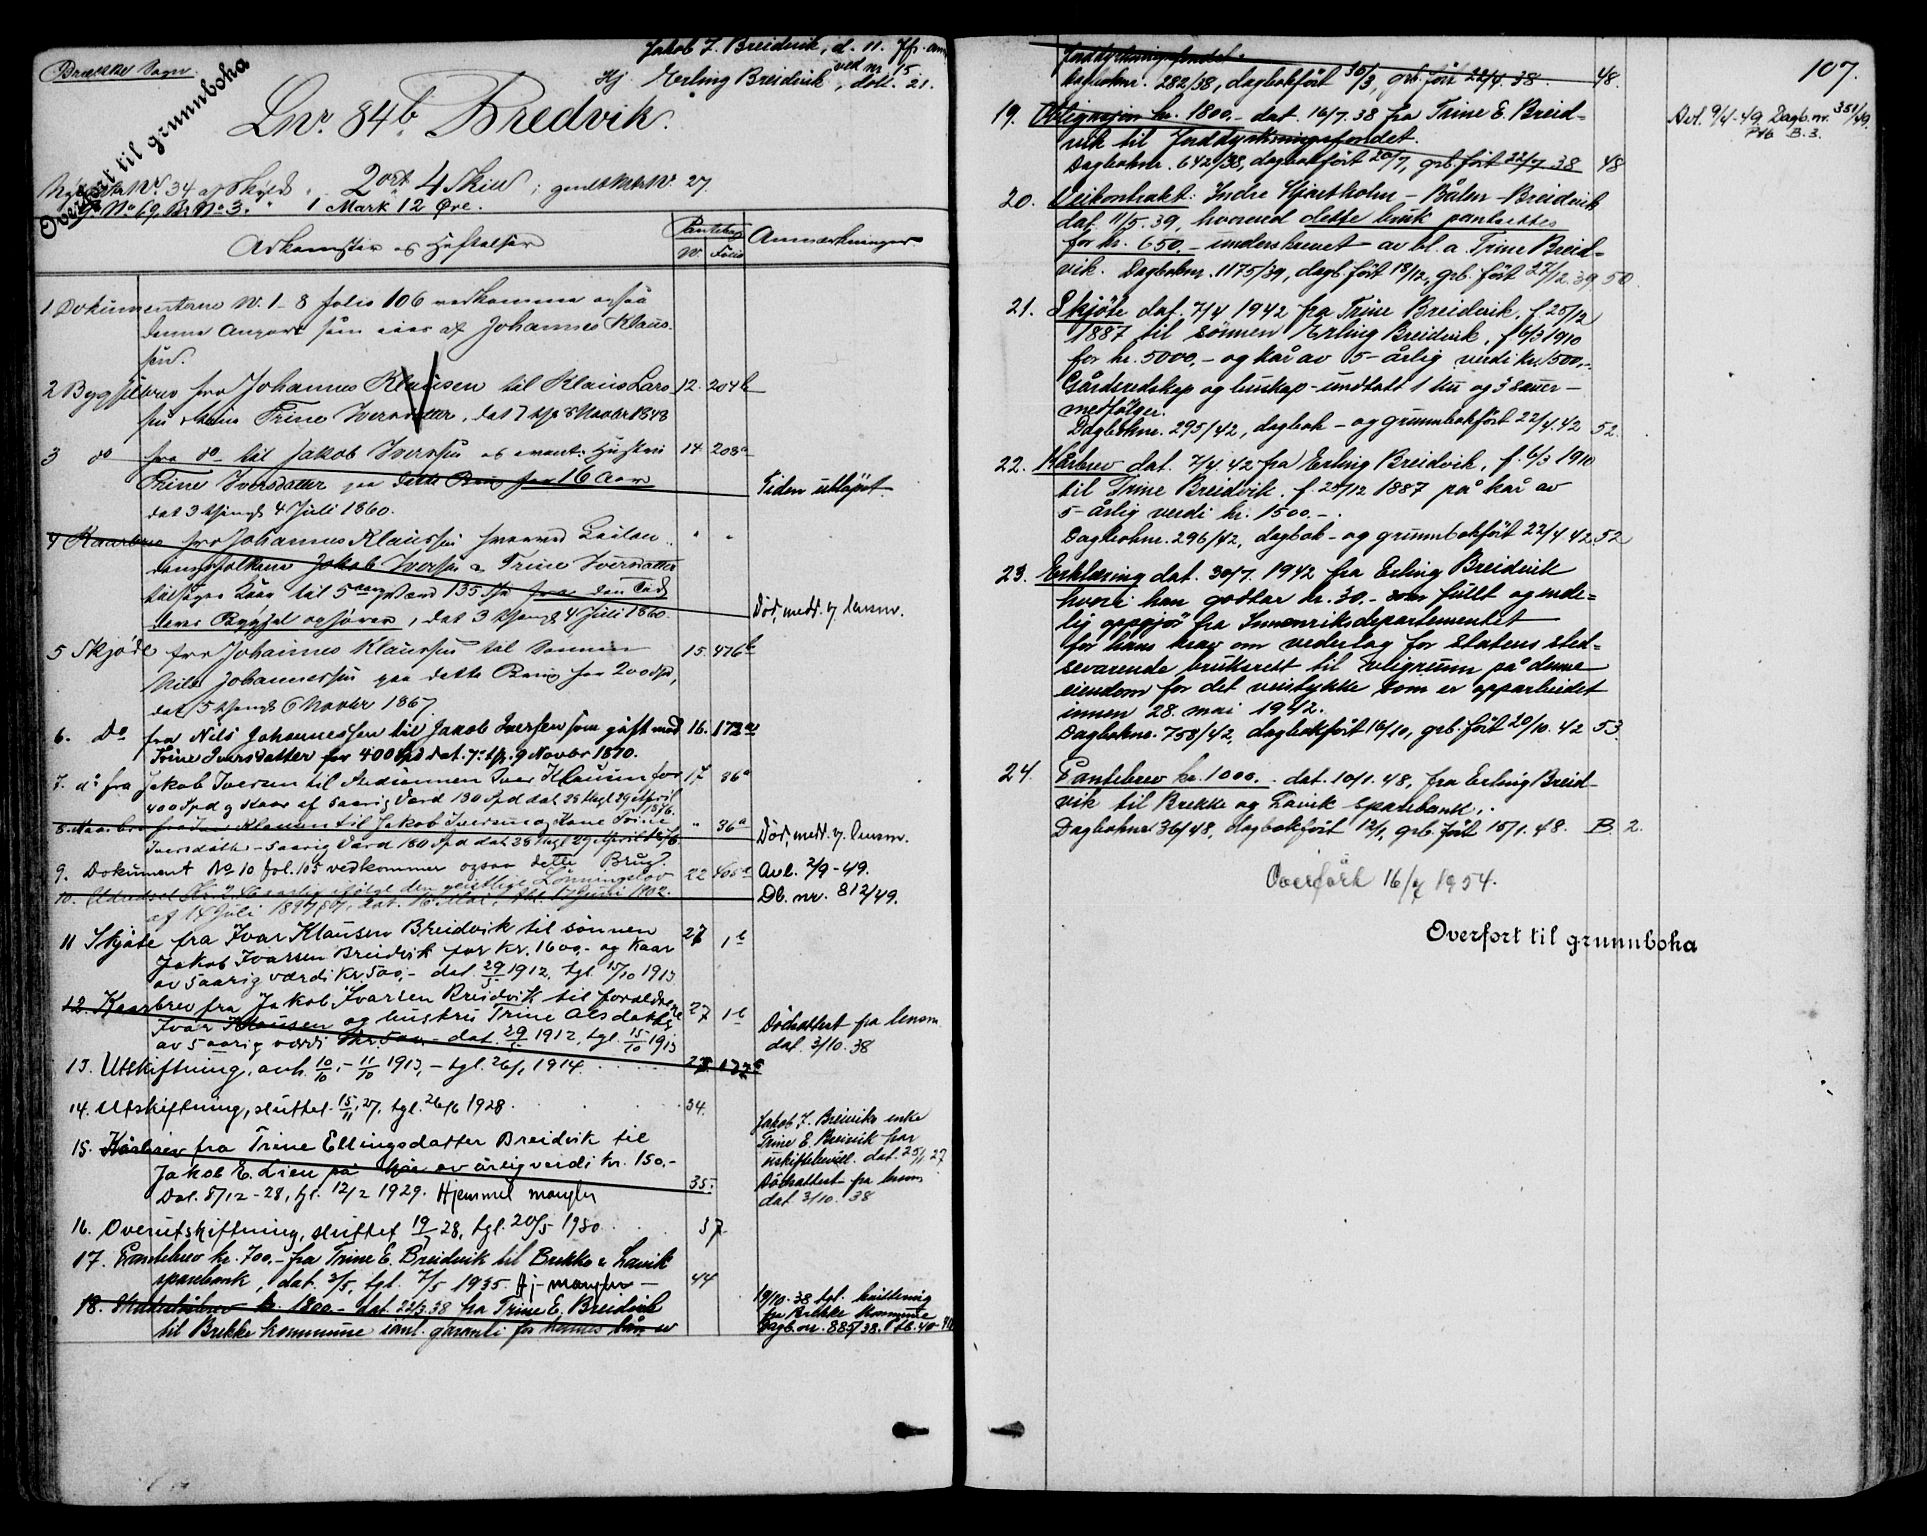 Jakob I. Breidvik, d. 11. Jfr. anm.
ved nr 15
Hj. Erling Breidvik, dok. 21.
Brække Sogn
Overført til grunnboka
Lnr. 84b Bredvik.
Mtr. Nr. 34 af Skyld 2 ort 4 Skill; gamle Mtr. Nr. 27.
G. No 69 Br. No 3. " 1 Mark 12 Øre.
Adkomster og Hæftelser
Pantebog
Anmærkninger
Nr. Folio
1 Dokumenterne Nr. 1-8 folio 106 vedkomme ogsaa
denne Anpart som eies af Johannes Klaus-
sen.
2 Bygselbrev fra Johannes Klausen til Klaus Lars- 12. 204b
sen & Kone Trine Iversdatter, dat 7 tgl 8 Novbr 1848
3 do fra do til Jakob Iversen og event. Hustru 14. 208a
Trine Iversdatter paa dette Brug for 16 Aar
dat 3 thingl 4 Juli 1860.
Tiden utløpet
4 Kaarbrev fra Johannes Klaussen hvorved Leilæn- " "
dingsfolkene Jakob Iversen & Trine Iversdatter
tilsiges Kaar til 5 aarig Værd 135 Spd fra den Tid
deres Bygsel ophører, dat 3 thingl 4 Juli 1860.
Død, medd. af lensm.
5 Skjøde fra Johannes Klaussen til Sønnen 15. 476b
Nils Johannessen paa dette Brug for 200 Spd,
dat 5 thingl 6 Novbr 1867
6. Do fra Nils Johannessen til Jakob Iversen som gift med 16. 172a
Trine Iversdatter for 400 Spd dat. 7. tgl. 9 Novbr 1870.
7. do fra Jakob Iversen til Iver Klausen for 17 36a
400 Spd & Kaar af 5aarig Værd 130 Spd dat 28 tingl 29 April
1876.
8. Kaarbrev fra Iver Klausen til Jakob Iversen og Kone Trine " 36a
Iversdatter - 5aarig Værd 130 Spd dat 28 tingl 29 April 1876
Død, medd. af lensm.
9. Dokument No 10 fol. 105 vedkommer ogsaa dette Brug.
10. aarlig ifølge den geistlige Lønningslov 22
af 14 Juli 1897, dat. 16 Mai, tgl. 17 Juni 1902.
Avl. 2/9-49.
Db. nr. 812/49.
11 Skjøte fra Ivar Klausen Breidvik til sønnen 27 1b
Jakob Ivarsen Breidvik for Kr. 1600,- og Kaar
av 5aarig værdi Kr. 500,- dat. 29/5 1912, tgl. 15/10 1913
12. Kaarbrev fra Jakob Ivarsen Breidvik til forældrene 27 1b
Ivar Klausen og hustru Trine Olsdatter
av 5aarig værdi Kr. 500,- dat. 29/5 1912, tgl. 15/10 1913
Dødsattest fra lensm.
dat. 3/10. 38
13. Utskiftning, avh. 10/10 - 11/10 1913, - tgl. 26/1 1914.
14. Utskiftning, sluttet 15/11 27, tgl. 26/6 1928. 34.
15. Kårbrev fra Trine Ellingsdatter Breidvik til
Jakob E. Lien på kår av årlig verdi kr. 150,-
Dat. 8/12-28, tgl. 12/2 1929. Hjemmel mangler 35.
Jakob I. Breiviks enke
Trine E. Breivik har
uskiftebevill. dat. 25/1 27
Dødsattest fra lensm.
dat. 3/10. 38
16. Overutskiftning, sluttet 19/7 28, tgl. 20/5 1930. 37
17. Pantebrev kr. 700,- fra Trine E. Breidvik til Brekke & Lavik
sparebank, dat. 3/5, tgl. 7/5 1935. Hj. mangler - 44
18. Skadesløsbrev kr. 1800,- dat. 22/3 38 fra Trine E. Breidvik
til Brekke kommune iant. garanti for hennes lån av
19/10-38 tgl. kvittering
fra Brekke kommune
Dagb. nr. 885/38. Ptb. 40-
107.
Jorddyrkningsfondet.
Dagboknr. 282/38, dagbokført 30/3, grb. ført 22/4. 38 48.
19. Obligasjon kr. 1800,- dat. 16/7. 38 fra Trine E. Breid-
vik til Jorddyrkningsfondet.
Dagboknr. 642/38, dagbokført 20/7, grb. ført 22/7 38 48
Avl. 9/4-49 Dagb. nr. 351/49.
Ptb B. 3.
20. Veikontrakt: Indre Hjartholm - Bålen - Breidvik
dat. 11/5. 39, hvorved dette bruk pantsettes
for kr. 650,- underskrevet av bl. a. Trine Breid-
vik. Dagboknr. 1175/39, dagb. ført 19/12, grb. ført 27/12. 39 50.
21. Skjøte dat. 7/4 1942 fra Trine Breidvik, f. 25/12
1887 til sønnen Erling Breidvik, f. 6/3 1910
for kr. 5000,- og kår av 5-årlig verdi kr. 1500,-.
Gårdsredskap og buskap - undtatt 1 ku og 3 sauer -
medfølger.
Dagboknr. 295/42, dagbok- og grunnbokført 22/4. 42 52.
22. Kårbrev dat. 7/4. 42 fra Erling Breidvik, f. 6/3 1910
til Trine Breidvik, f. 25/12 1887 på kår av
5-årlig verdi kr. 1500.-.
Dagboknr. 296/42, dagbok- og grunnbokført 22/4 42 52
23. Erklæring dat. 30/7. 1942 fra Erling Breidvik
hvori han godtar kr. 30,- som fullt og ende-
lig oppgjør fra Innenriksdepartementet
for hans krav om vederlag for statens sted-
sevarende bruksrett til veigrunn på denne
eiendom for det veistykke som er opparbeidet
innen 28. mai 1942.
Dagboknr. 758/42, dagbokført 16/10, grb. ført 20/10. 42 53.
24. Pantebrev kr. 1000,- dat. 10/1. 48, fra Erling Breid-
vik til Brekke og Lavik sparebank.
Dagboknr 36/48, dagbokført 12/1, grb. ført 15/1. 48. B. 2.
Overført 16/7 1954.
Overført til grunnboka